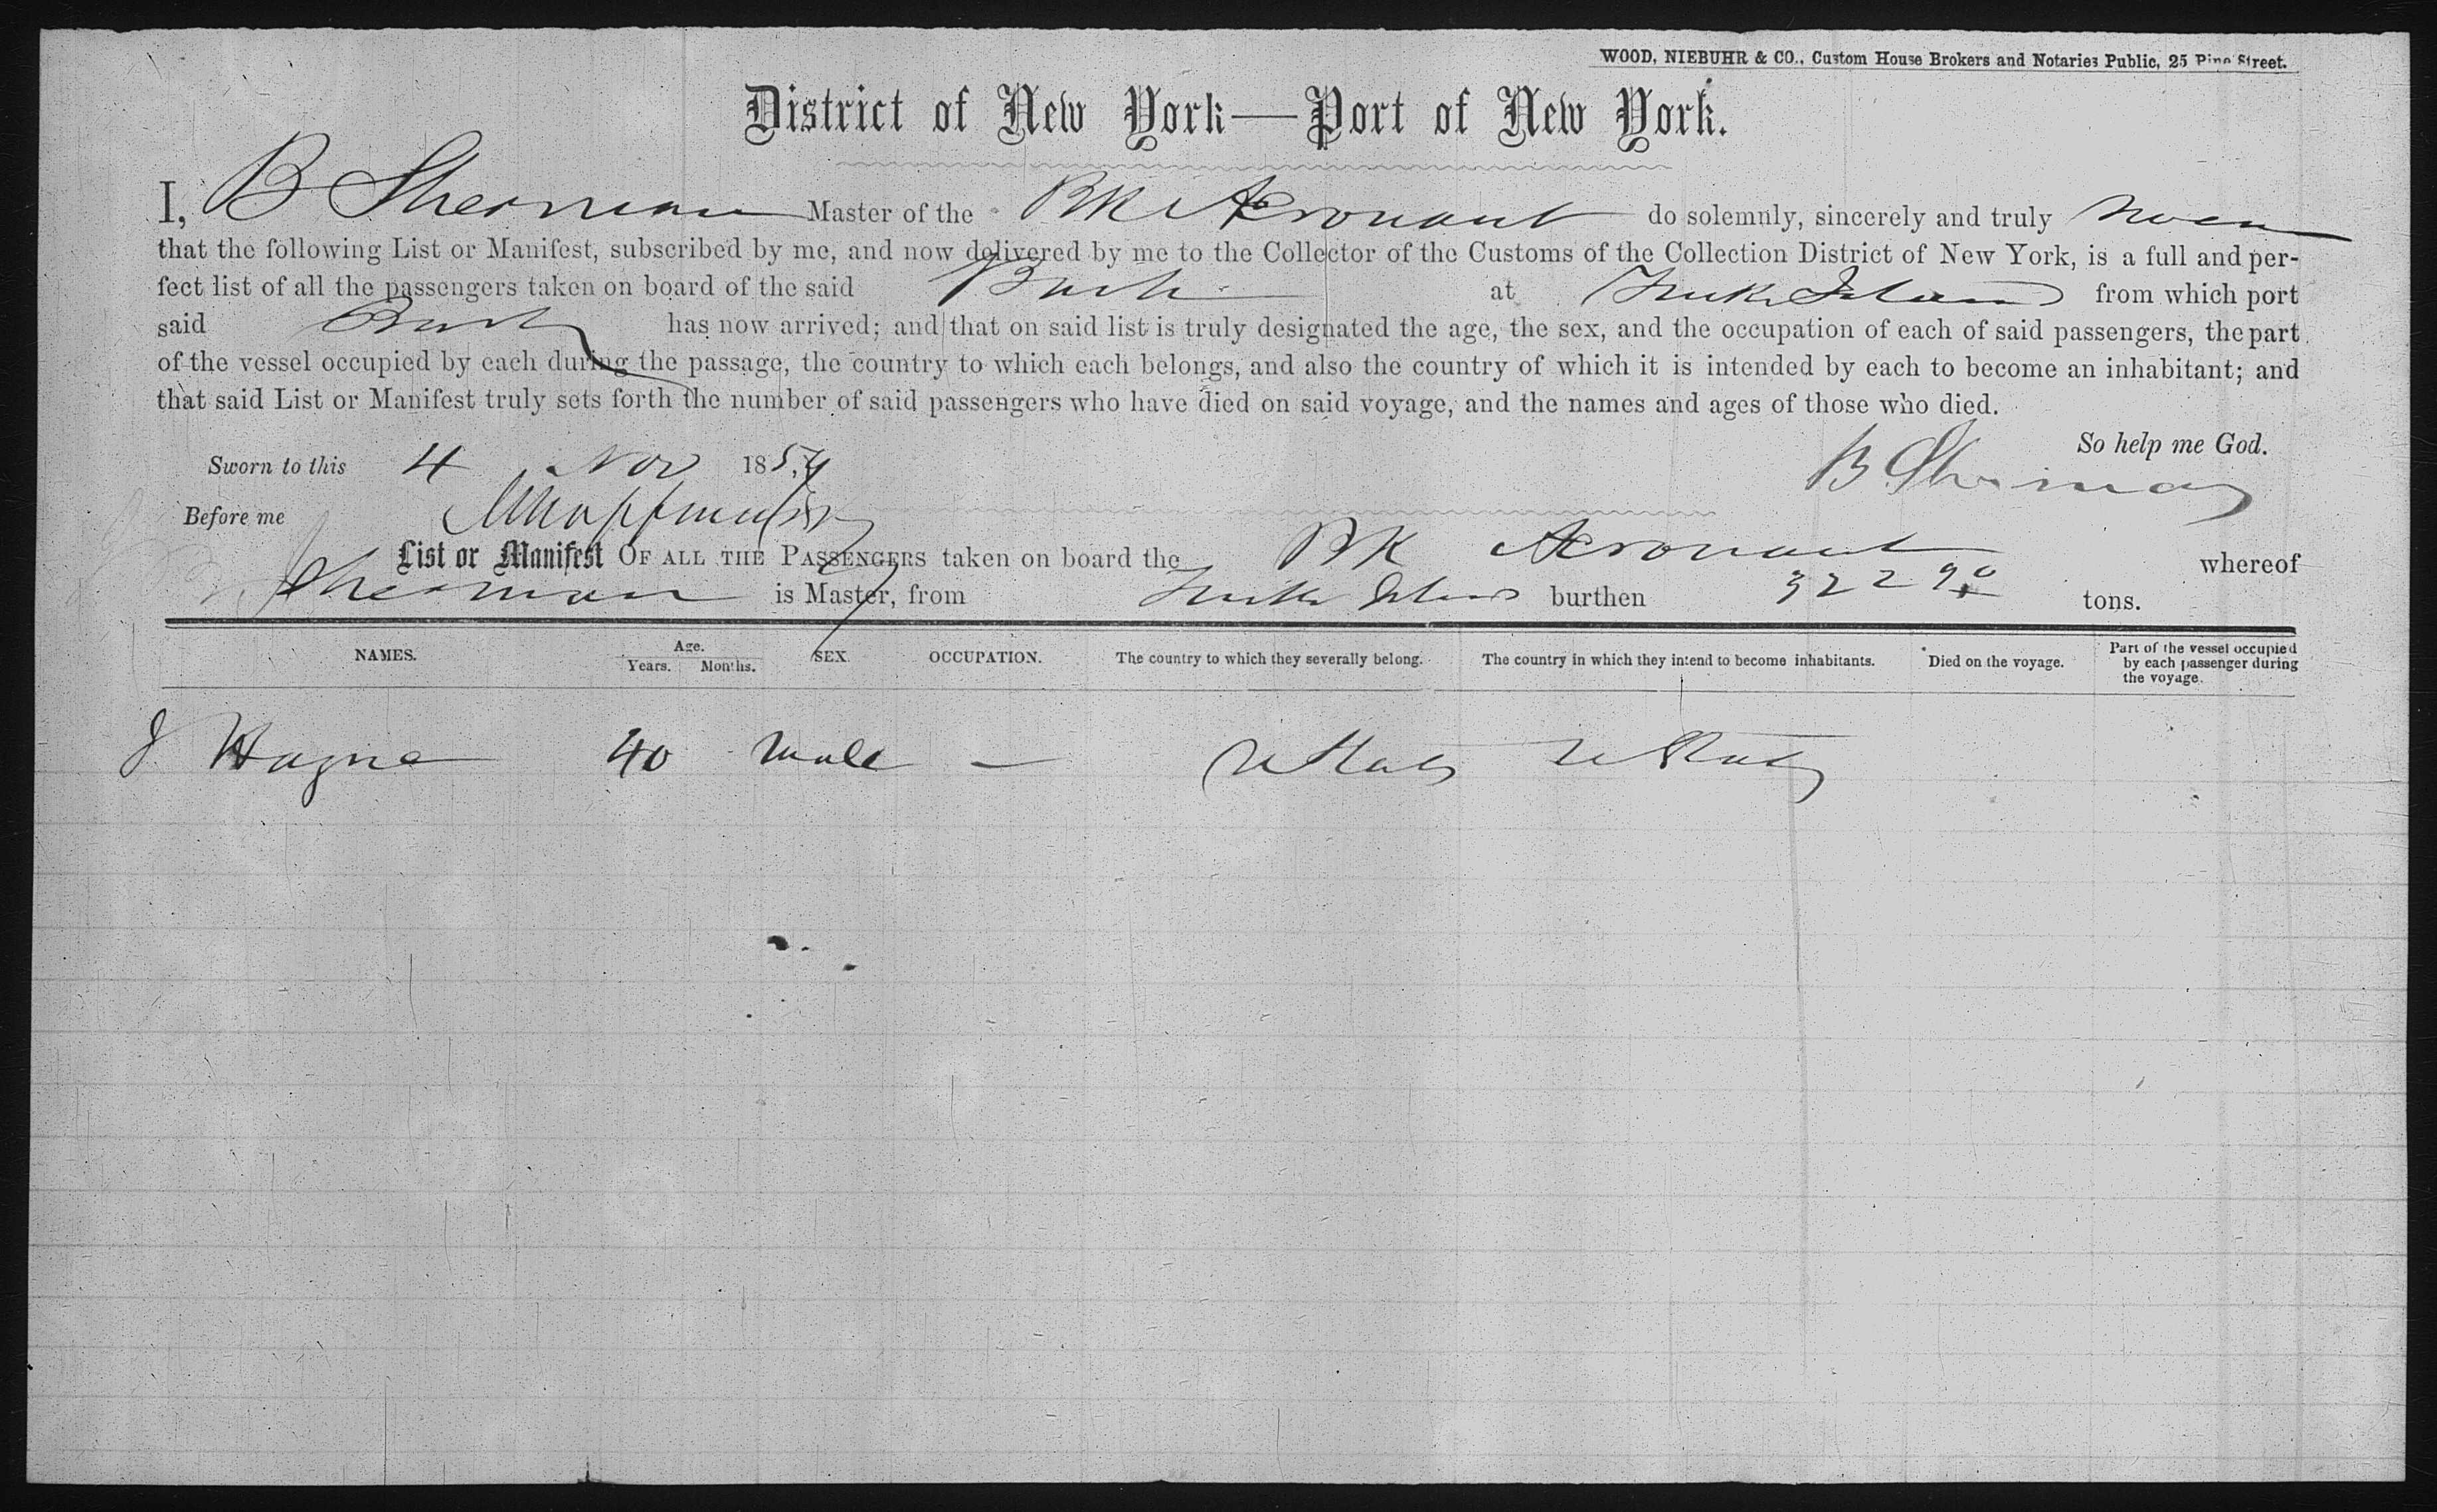 WOOD, NIEBUHR & CO., Custom House Brokers and Notaries Public, 25 Pine Street.
District of New York—Port of New York.
I, B Sherman Master of the Bk Aeronaut do solemnly, sincerely and truly swear
that the following List or Manifest, subscribed by me, and now delivered by me to the Collector of the Customs of the Collection District of New York, is a full and per-
fect list of all the passengers taken on board of the said Bark at Turks Island from which port
said Bark has now arrived; and that on said list is truly designated the age, the sex, and the occupation of each of said passengers, the part
of the vessel occupied by each during the passage, the country to which each belongs, and also the country of which it is intended by each to become an inhabitant; and
that said List or Manifest truly sets forth the number of said passengers who have died on said voyage, and the names and ages of those who died.
So help me God.
Sworn to this 4 Nov 1854 B Sherman
Before me
List or Manifest OF ALL THE PASSENGERS taken on board the Bk Aeronaut whereof
B. Sherman is Master, from Turks Island burthen 322 90 tons.
NAMES. Age. Years. Months. SEX. OCCUPATION. The country to which they severally belong. The country in which they intend to become inhabitants. Died on the voyage. Part of the vessel occupied by each passenger during the voyage.
J Hagne 40 male — U States U States